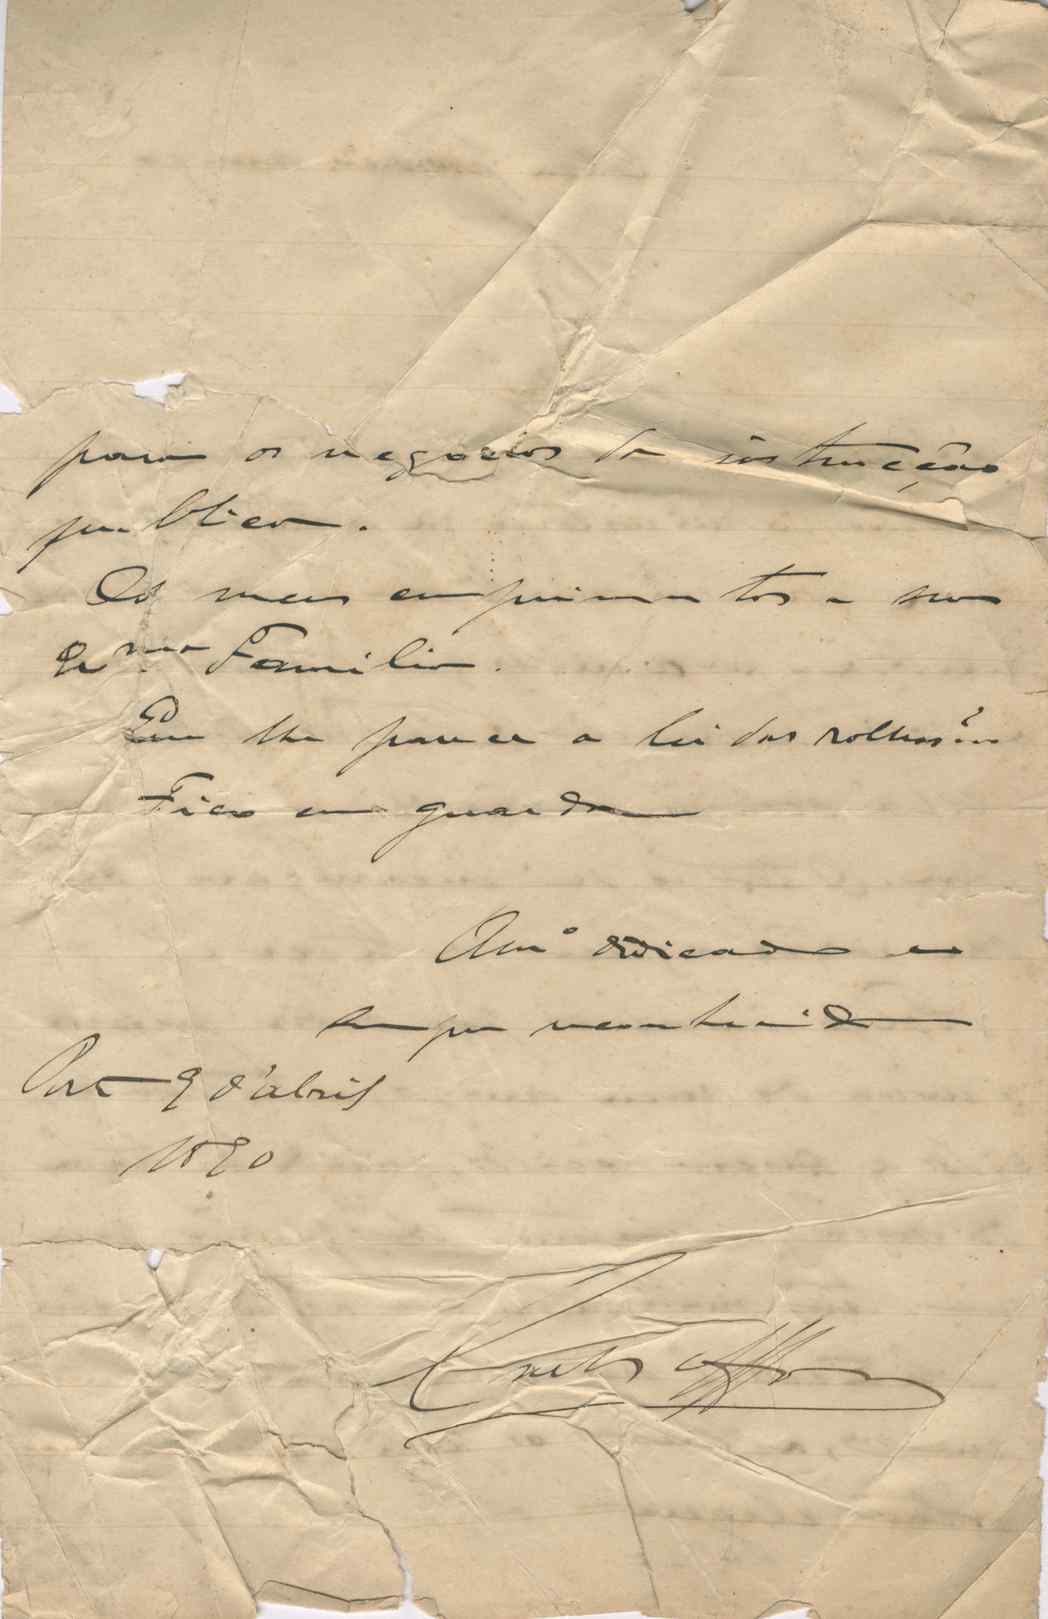 para os negocios da instrucção
publica.
Os meus cumprimentos a sua
Ex.ma Familia.
Que lhe parece a lei das rolhas?...
Fico em guarda
Am.º dedicado e
sempre reconhecido
Porto 9 d'abril
1890